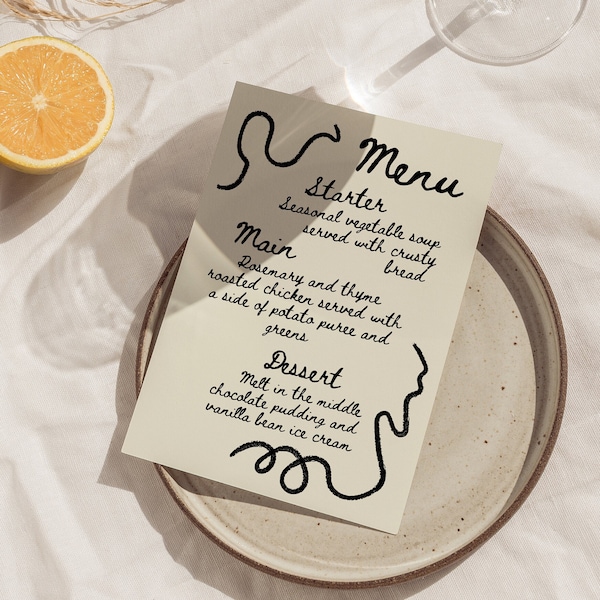 Menu
Starter
Seasonal vegetable soup
served with crusty
bread
Main
Rosemary and thyme
roasted chicken served with
a side of potato puree and
greens
Dessert
Melt in the middle
chocolate pudding and
vanilla bean ice cream